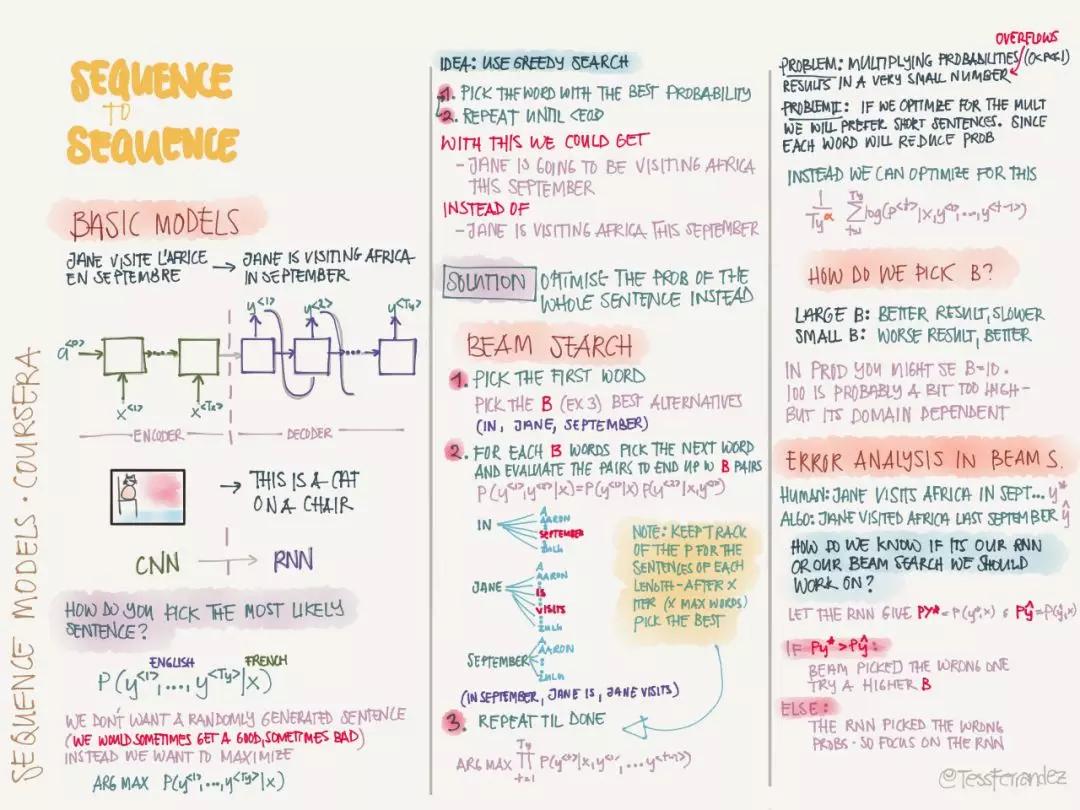 SEQUENCE MODELS · COURSERA
SEQUENCE
TO
SEQUENCE
BASIC MODELS
JANE VISITE L'AFRICE
EN SEPTEMBRE
→ JANE IS VISITING AFRICA
IN SEPTEMBER
y<1> y<2> y<Ty>
a<0>
x<1> x<Tx>
ENCODER DECODER
→ THIS IS A CAT
ON A CHAIR
CNN → RNN
HOW DO YOU PICK THE MOST LIKELY
SENTENCE?
ENGLISH FRENCH
P(y<1>,...,y<Ty>|x)
WE DON'T WANT A RANDOMLY GENERATED SENTENCE
(WE WOULD SOMETIMES GET A GOOD, SOMETIMES BAD)
INSTEAD WE WANT TO MAXIMIZE
ARG MAX P(y<1>,...,y<Ty>|x)
IDEA: USE GREEDY SEARCH
1. PICK THE WORD WITH THE BEST PROBABILITY
2. REPEAT UNTIL <EOS>
WITH THIS WE COULD GET
- JANE IS GOING TO BE VISITING AFRICA
THIS SEPTEMBER
INSTEAD OF
- JANE IS VISITING AFRICA THIS SEPTEMBER
SOLUTION OPTIMISE THE PROB OF THE
WHOLE SENTENCE INSTEAD
BEAM SEARCH
1. PICK THE FIRST WORD
PICK THE B (EX 3) BEST ALTERNATIVES
(IN, JANE, SEPTEMBER)
2. FOR EACH B WORDS PICK THE NEXT WORD
AND EVALUATE THE PAIRS TO END UP W B PAIRS
P(y<1>,y<2>|x)=P(y<1>|x) P(y<2>|x,y<1>)
IN
A
AARON
SEPTEMBER
ZULU
JANE
A
AARON
IS
VISITS
ZULU
SEPTEMBER
A
AARON
ZULU
NOTE: KEEP TRACK
OF THE P FOR THE
SENTENCES OF EACH
LENGTH - AFTER X
ITER (X MAX WORDS)
PICK THE BEST
(IN SEPTEMBER, JANE IS, JANE VISITS)
3. REPEAT TIL DONE
ARG MAX ∏ Ty t=1 P(y<t>|x,y<1>,...y<t-1>)
OVERFLOWS
PROBLEM: MULTIPLYING PROBABILITIES (0<P≤1)
RESULTS IN A VERY SMALL NUMBER
PROBLEM II: IF WE OPTIMIZE FOR THE MULT
WE WILL PREFER SHORT SENTENCES. SINCE
EACH WORD WILL REDUCE PROB
INSTEAD WE CAN OPTIMIZE FOR THIS
1/Ty^α ∑ Ty t=1 log(P<t>|x,y<1>,...,y<t-1>)
HOW DO WE PICK B?
LARGE B: BETTER RESULT, SLOWER
SMALL B: WORSE RESULT, BETTER
IN PROD YOU MIGHT SE B=10.
100 IS PROBABLY A BIT TOO HIGH -
BUT ITS DOMAIN DEPENDENT
ERROR ANALYSIS IN BEAM S.
HUMAN: JANE VISITS AFRICA IN SEPT... y*
ALGO: JANE VISITED AFRICA LAST SEPTEMBER ŷ
HOW DO WE KNOW IF ITS OUR RNN
OR OUR BEAM SEARCH WE SHOULD
WORK ON?
LET THE RNN GIVE Py*=P(y*,x) & Pŷ=P(ŷ,x)
IF Py* > Pŷ:
BEAM PICKED THE WRONG ONE
TRY A HIGHER B
ELSE:
THE RNN PICKED THE WRONG
PROBS - SO FOCUS ON THE RNN
@TessFerrandez